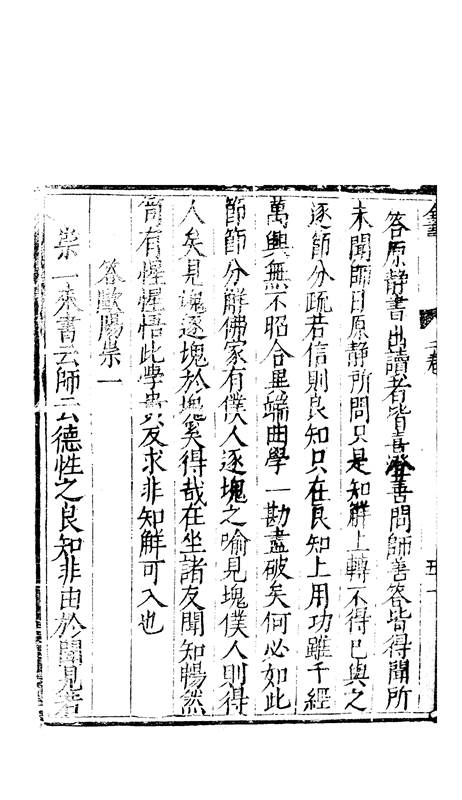 答原靜書出讀者皆喜澄善問師善答皆得聞所
未聞師曰原靜所問只是知解上轉不得已與之
逐節分疏若信則良知只在良知上用功雖千經
萬典無不昭合異端曲學一勘盡破矣何必如此
節節分解佛家有僕人逐塊之喻見塊僕人則得
人矣見塊逐塊於塊奚得哉在坐諸友聞知惕然
皆有惺惺悟此學貴反求非知解可入也
答歐陽崇一
崇一來書云師云德性之良知非由於聞見若